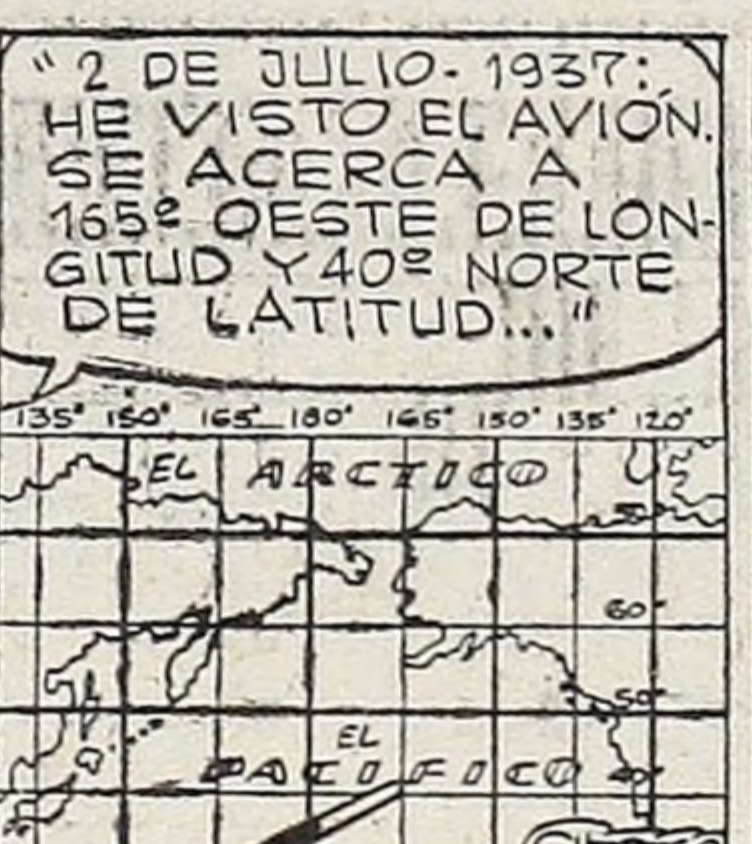 "2 DE JULIO- 1937:
HE VISTO EL AVIÓN.
SE ACERCA A
165º OESTE DE LON-
GITUD Y 40º NORTE
DE LATITUD..."
135° 150° 165° 180° 165° 150° 135° 120°
EL ARCTICO
60°
50°
EL
PACIFICO 40°